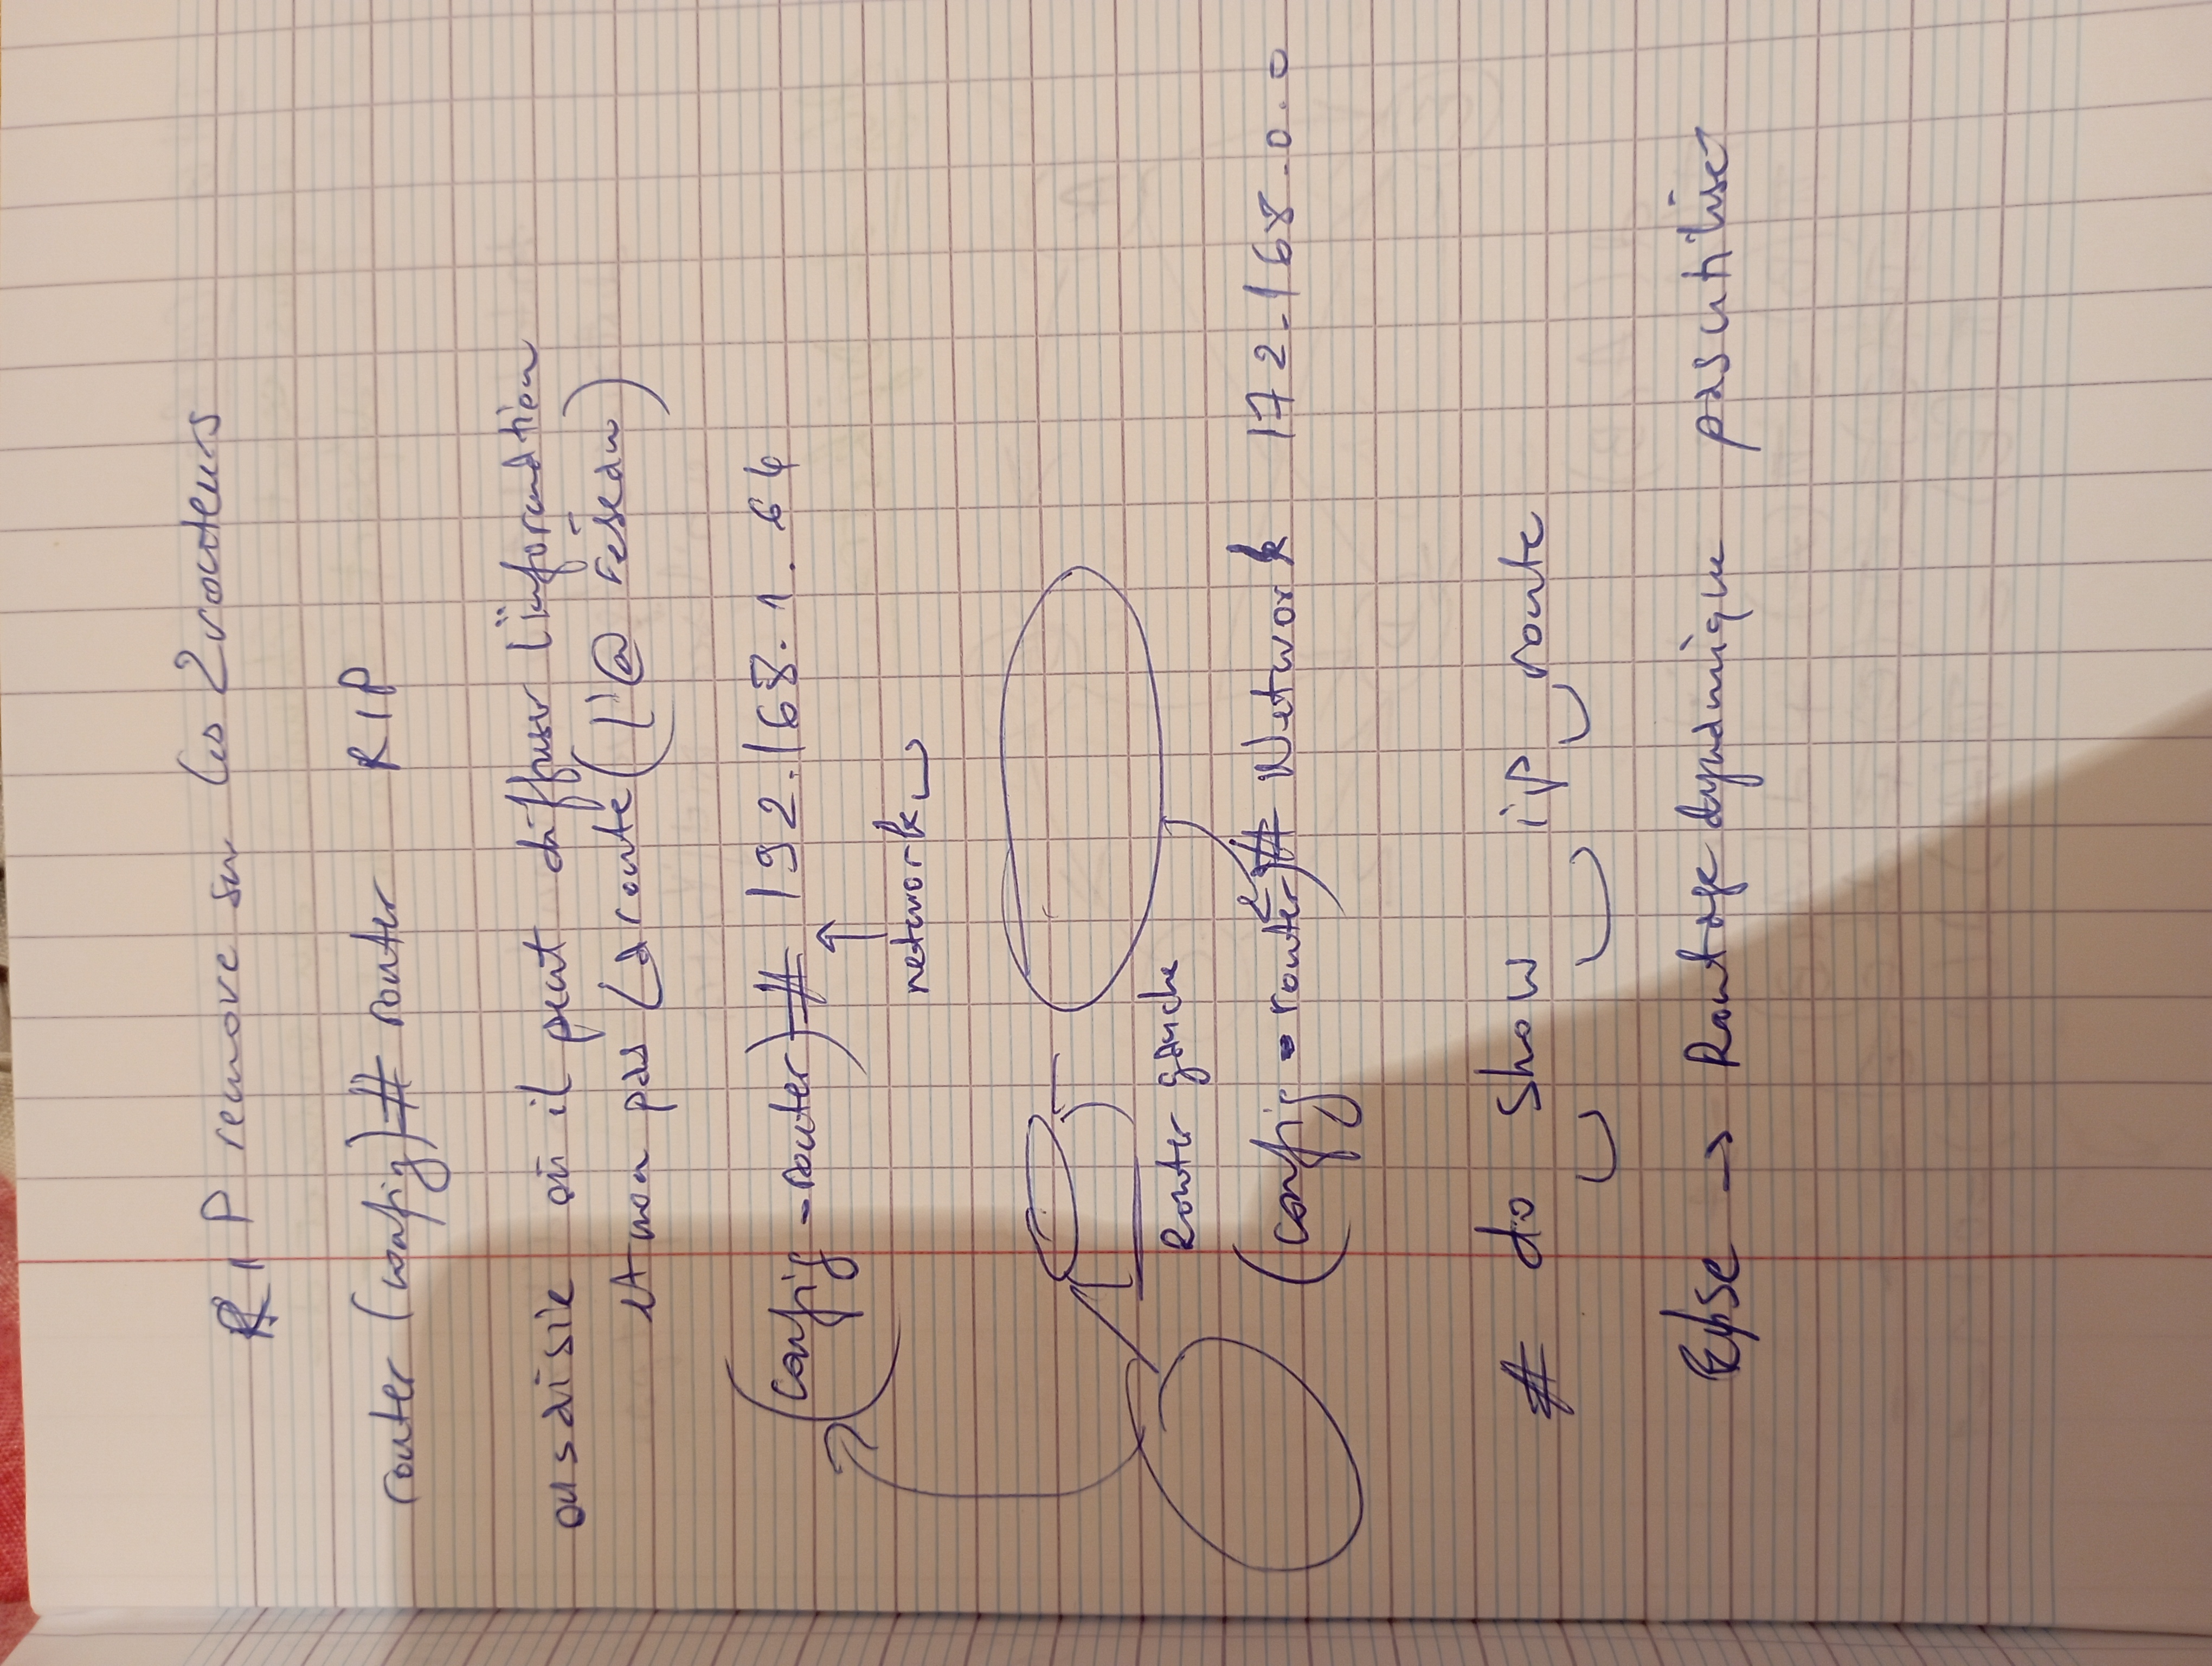 RIP remove sur les 2 routeurs
router (config)# router RIP
on saisie où il peut diffuser l'information
et non pas la route (l'@ réseau)
(config-router)# 192.168.1.64
network
Router gauche
(config-router)# Network 172.168.0.0
# do show ip route
→ Routage dynamique pas utiliser